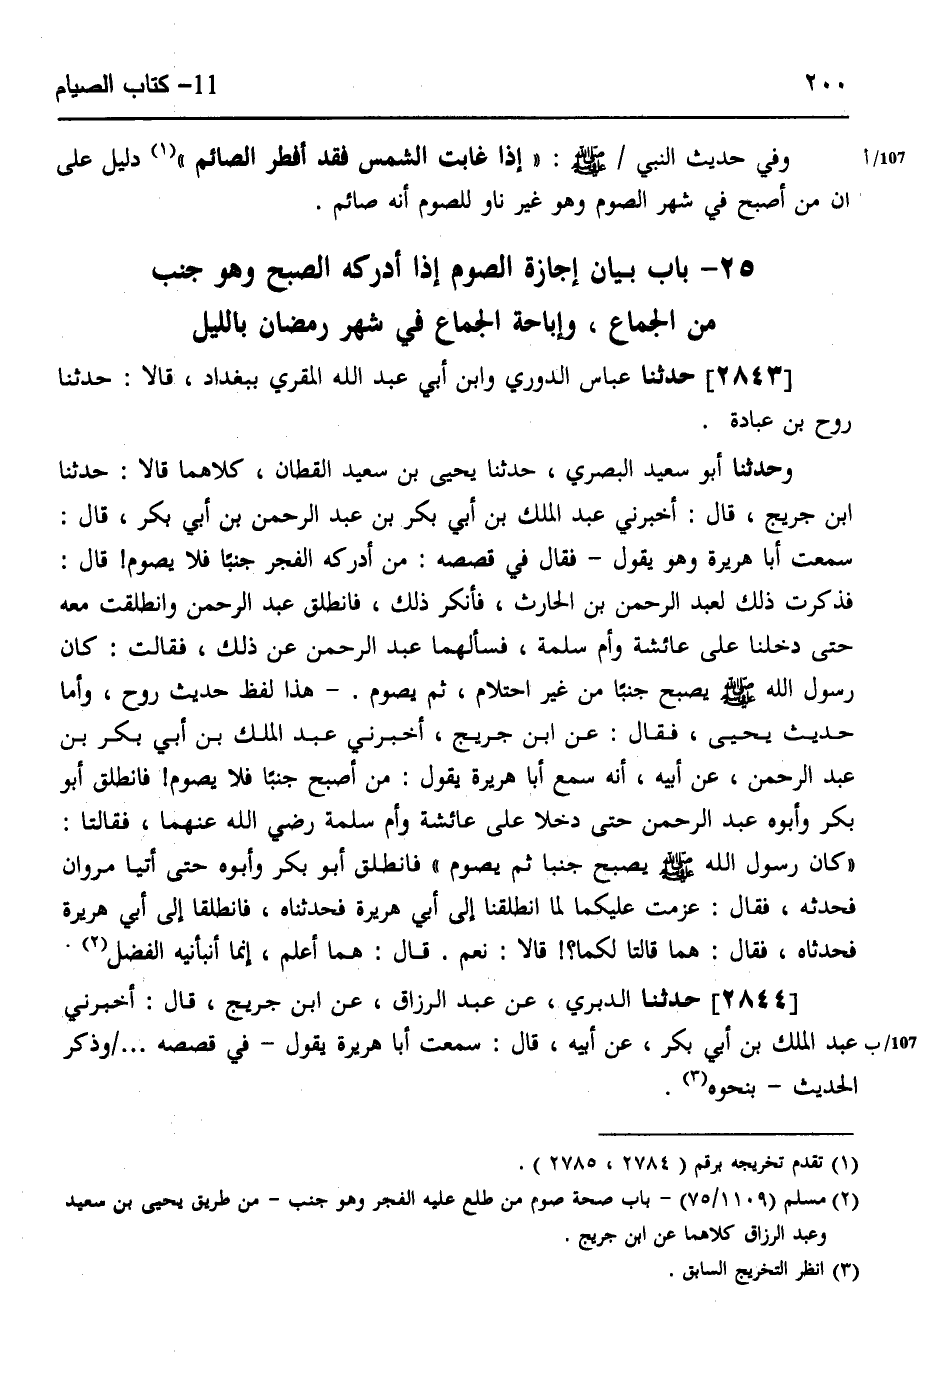 ٢٠٠ 11- كتاب الصيام
107/أ وفي حديث النبي / ﷺ : « إذا غابت الشمس فقد أفطر الصائم »(١) دليل على
ان من أصبح في شهر الصوم وهو غير ناو للصوم أنه صائم .
٢٥- باب بيان إجازة الصوم إذا أدركه الصبح وهو جنب
من الجماع ، وإباحة الجماع في شهر رمضان بالليل
[٢٨٤٣] حدثنا عباس الدوري وابن أبي عبد الله المقري ببغداد ، قالا : حدثنا
روح بن عبادة .
وحدثنا أبو سعيد البصري ، حدثنا يحيى بن سعيد القطان ، كلاهما قالا : حدثنا
ابن جريج ، قال : أخبرني عبد الملك بن أبي بكر بن عبد الرحمن بن أبي بكر ، قال :
سمعت أبا هريرة وهو يقول – فقال في قصصه : من أدركه الفجر جنبًا فلا يصوم! قال :
فذكرت ذلك لعبد الرحمن بن الحارث ، فأنكر ذلك ، فانطلق عبد الرحمن وانطلقت معه
حتى دخلنا على عائشة وأم سلمة ، فسألهما عبد الرحمن عن ذلك ، فقالت : كان
رسول الله ﷺ يصبح جنبًا من غير احتلام ، ثم يصوم . – هذا لفظ حديث روح ، وأما
حديث يحيى ، فقال : عن ابن جريج ، أخبرني عبد الملك بن أبي بكر بن
عبد الرحمن ، عن أبيه ، أنه سمع أبا هريرة يقول : من أصبح جنبًا فلا يصوم! فانطلق أبو
بكر وأبوه عبد الرحمن حتى دخلا على عائشة وأم سلمة رضي الله عنهما ، فقالتا :
«كان رسول الله ﷺ يصبح جنبا ثم يصوم » فانطلق أبو بكر وأبوه حتى أتيا مروان
فحدثه ، فقال : عزمت عليكما لما انطلقنا إلى أبي هريرة فحدثناه ، فانطلقا إلى أبي هريرة
فحدثاه ، فقال : هما قالتا لكما؟! قالا : نعم . قال : هما أعلم ، إنما أنبأنيه الفضل(٢) .
[٢٨٤٤] حدثنا الدبري ، عن عبد الرزاق ، عن ابن جريج ، قال : أخبرني
107/ب عبد الملك بن أبي بكر ، عن أبيه ، قال : سمعت أبا هريرة يقول – في قصصه .../وذكر
الحديث – بنحوه(٣) .
(١) تقدم تخريجه برقم ( ٢٧٨٤ ، ٢٧٨٥ ) .
(٢) مسلم (٧٥/١١٠٩) – باب صحة صوم من طلع عليه الفجر وهو جنب – من طريق يحيى بن سعيد
وعبد الرزاق كلاهما عن ابن جريج .
(٣) انظر التخريج السابق .